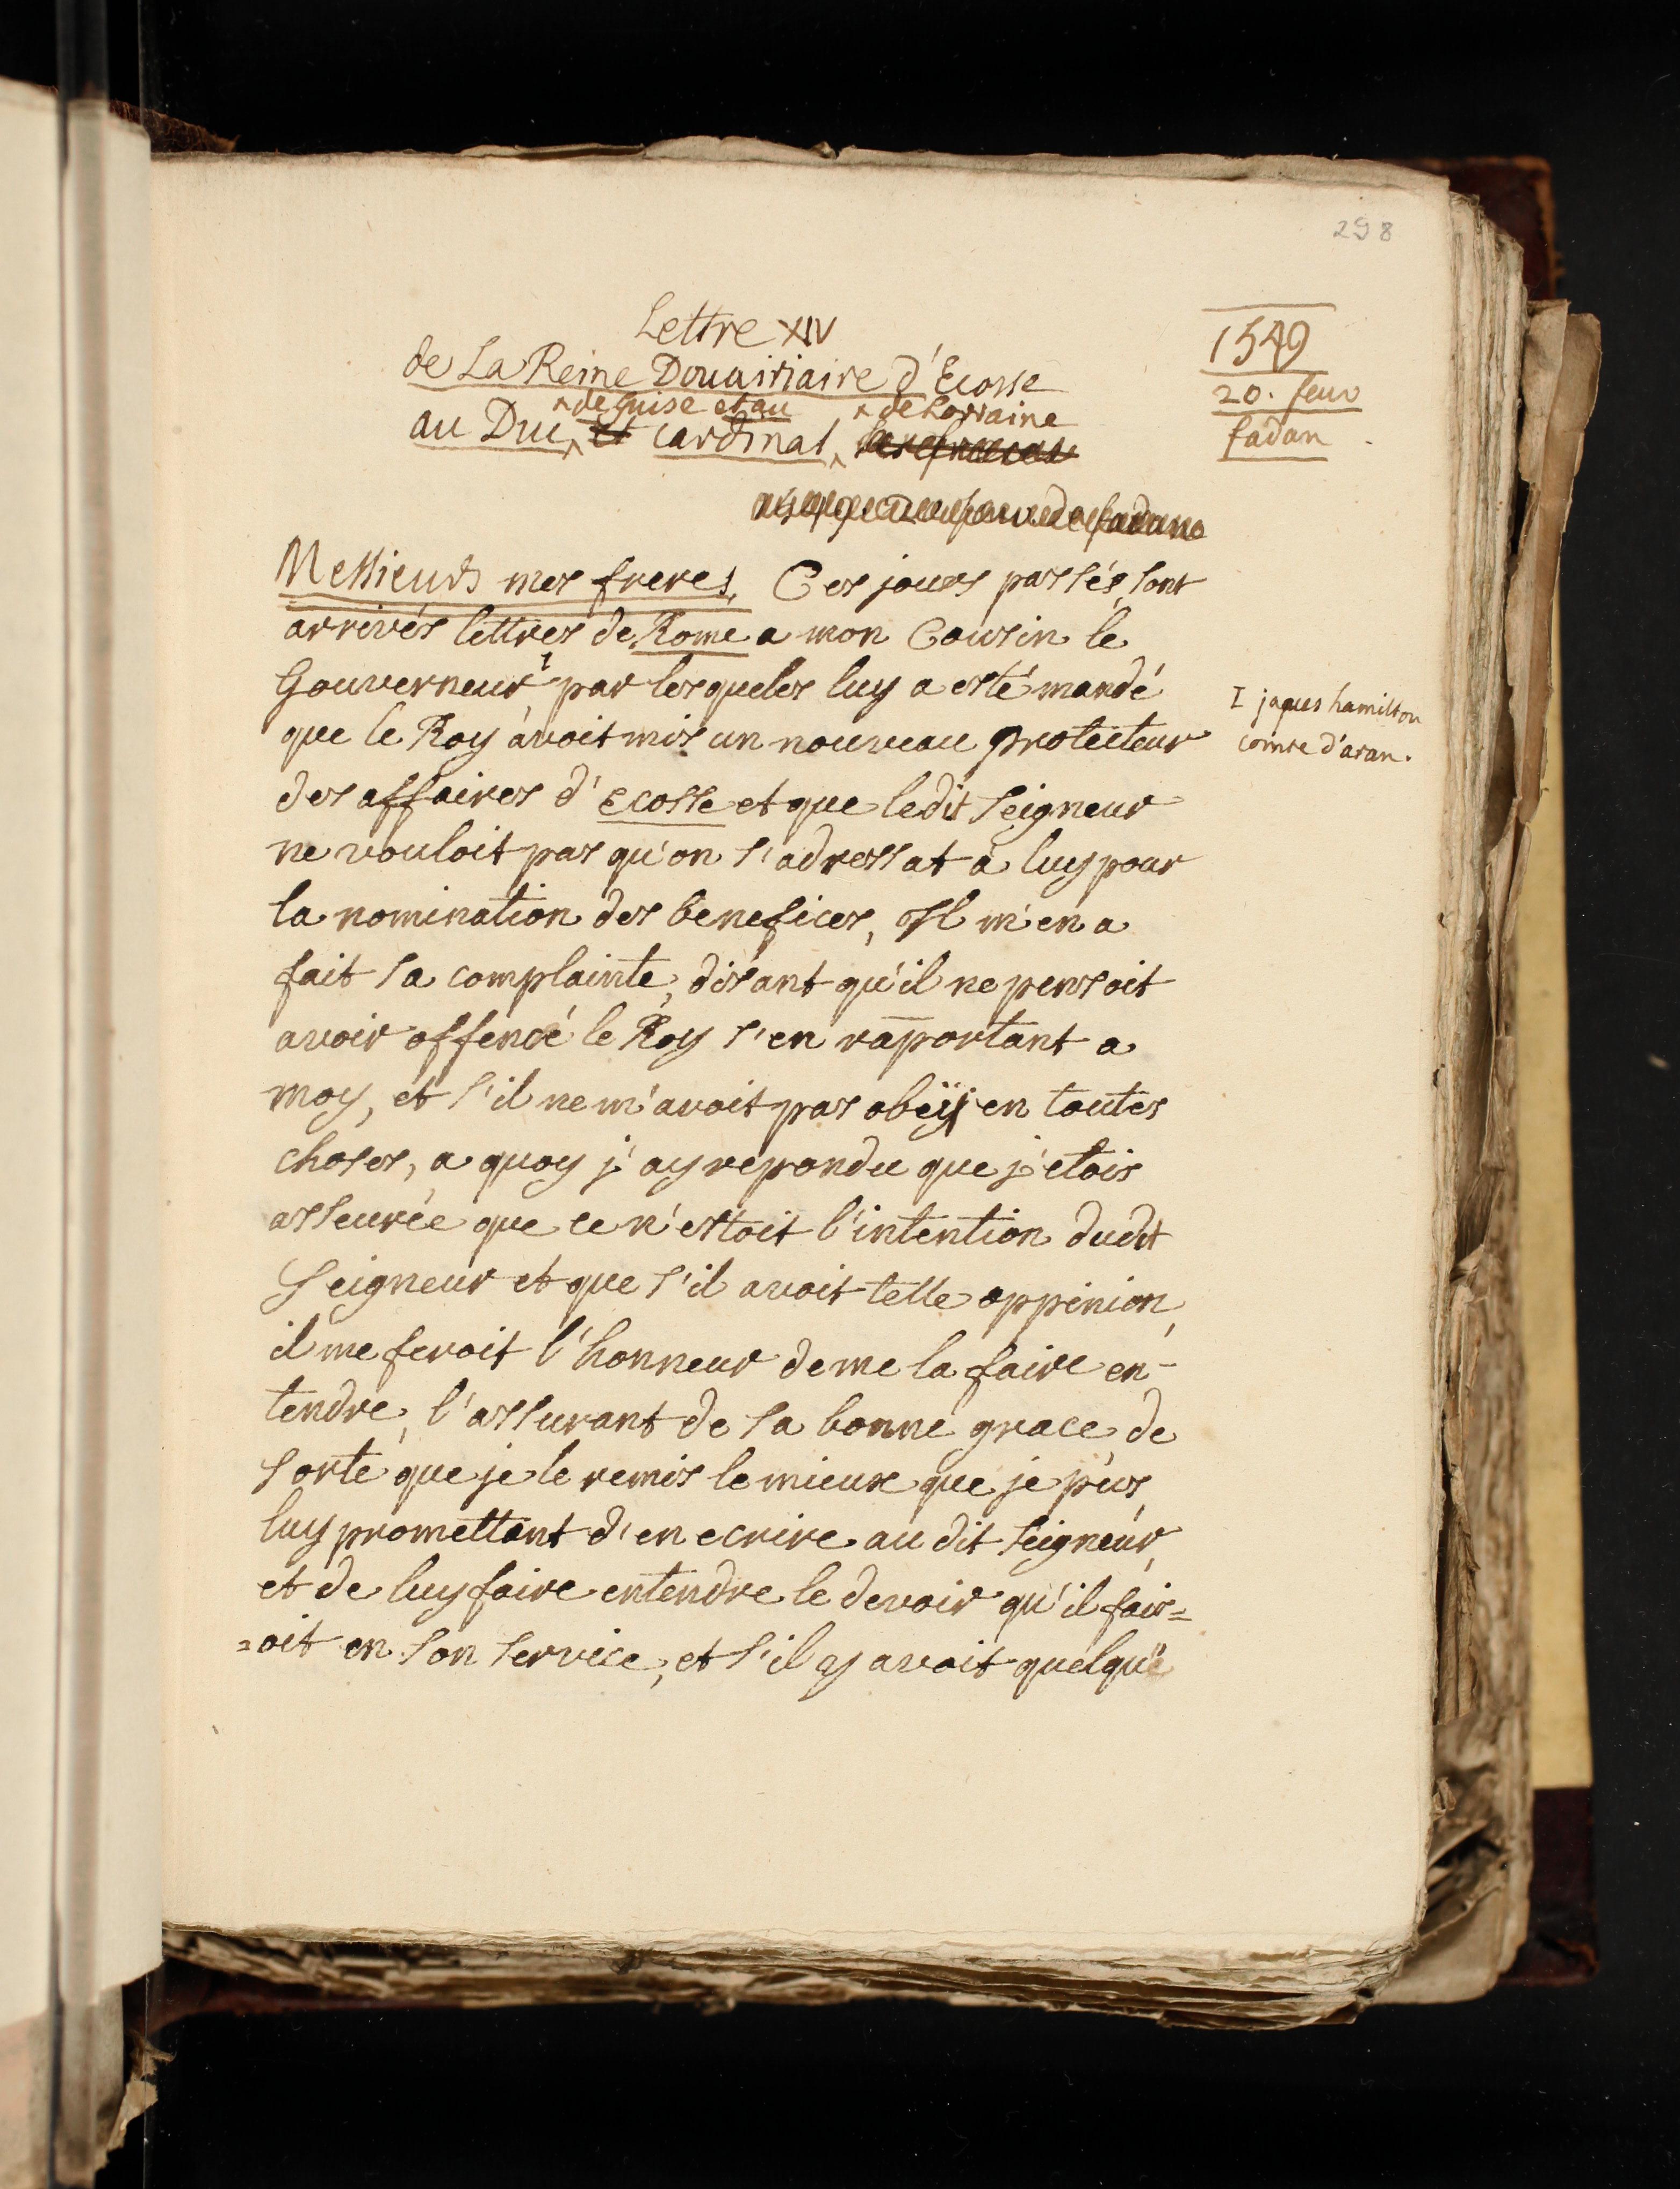 298
Lettre XIV
de La Reine Douairiaire d'Ecosse
^de Guise et au ^de Lorraine
au Duc^ et cardinal^
1549
20. feuv
fadan
Messieurs mes freres, Ces jours passés, sont
arrivés lettres de Rome a mon Cousin le
Gouverneur I, par lesqueles luy a esté mandé
que le Roy avoit mis un nouveau protecteur
des affaires d'ecosse et que ledit seigneur
ne vouloit pas qu'on s'adressat a luy pour
la nomination des benefices, Il m'en a
fait sa complainte, disant qu'il ne pensoit
avoir offencé le Roy s'en raportant a
moy, et s'il ne m'avoit pas obeÿ en toutes
choses, a quoy j'ay repondu que j'etois
asseurée que ce n'estoit l'intention dudt
Seigneur et que s'il avoit telle oppinion,
il me feroit l'honneur de me la faire en-
tendre, l'assurant de sa bonne grace, de
sorte que je le remis le mieux que je peus,
luy promettant d'en ecrire au dit seigneur,
et de luy faire entendre le devoir qu'il fais=
=oit en son service, et s'il y avoit quelque
I jaques hamilton
comte d'aran.